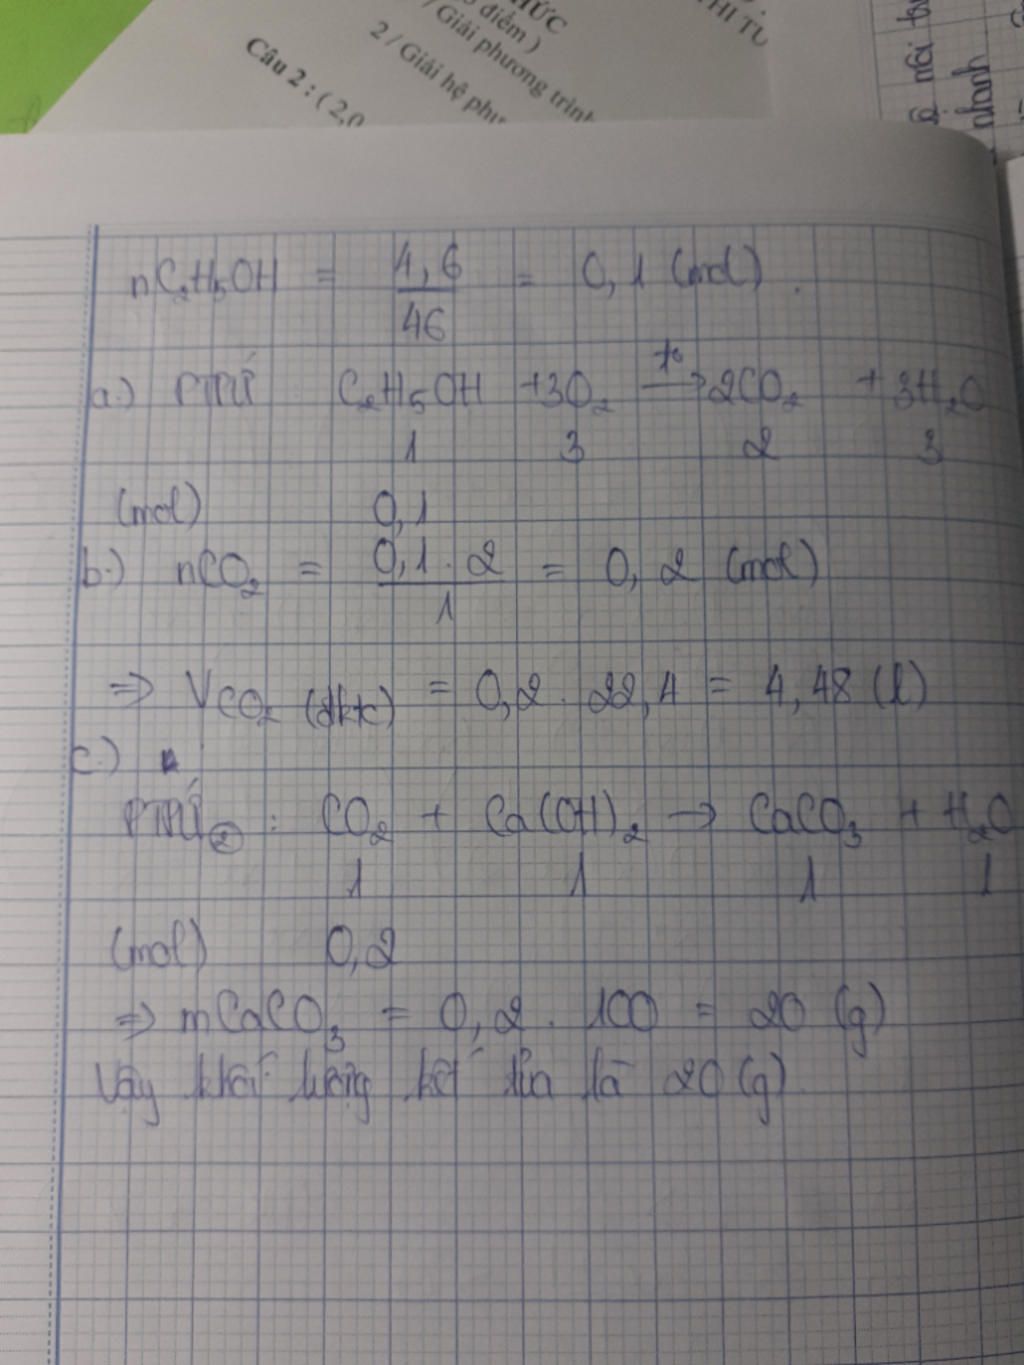 ỨC
HI TU
điểm )
/ Giải phương trình
2 / Giải hệ phư
Câu 2 : ( 2,0
mỗi
nhanh
nC₂H₅OH = 4,6/46 = 0,1 (mol).
a.) PTPƯ C₂H₅OH +3O₂ —t°→ 2CO₂ + 3H₂O
1 3 2 3
(mol) 0,1
b.) nCO₂ = 0,1 . 2/1 = 0,2 (mol)
=> VCO₂ (đktc) = 0,2 . 22,4 = 4,48 (l)
c.)
PTPƯ② : CO₂ + Ca(OH)₂ → CaCO₃ + H₂O
1 1 1 1
(mol) 0,2
=> mCaCO₃ = 0,2 . 100 = 20 (g)
Vậy khối lượng kết tủa là 20 (g).